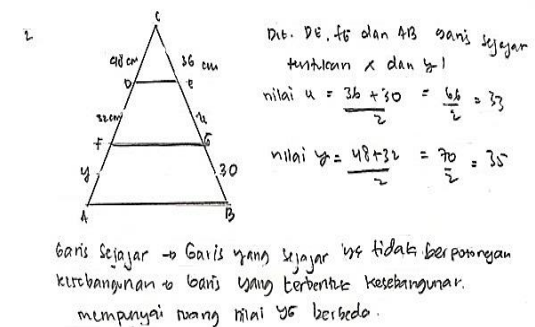 2
C
48 cm 36 cm
D E
32 cm x
F G
y 30
A B
Dit. DE, FG dan AB garis sejajar
tentukan x dan y!
nilai x = 36 + 30 / 2 = 66 / 2 = 33
nilai y = 48 + 32 / 2 = 70 / 2 = 35
Garis sejajar → Garis yang sejajar yg tidak berpotongan
kesebangunan → Garis yang terbentuk kesebangunan.
mempunyai ruang nilai yg berbeda.